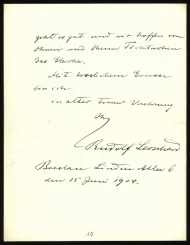 geht es gut und wir hoffen von
Ihnen und Ihrem Töchterchen
das Gleiche.
Mit herzlichem Grusse
bin ich
in alter treuer Verehrung
Ihr
Rudolf Leonhard
Breslau Linden Allee 6
den 15 Juni 1904.